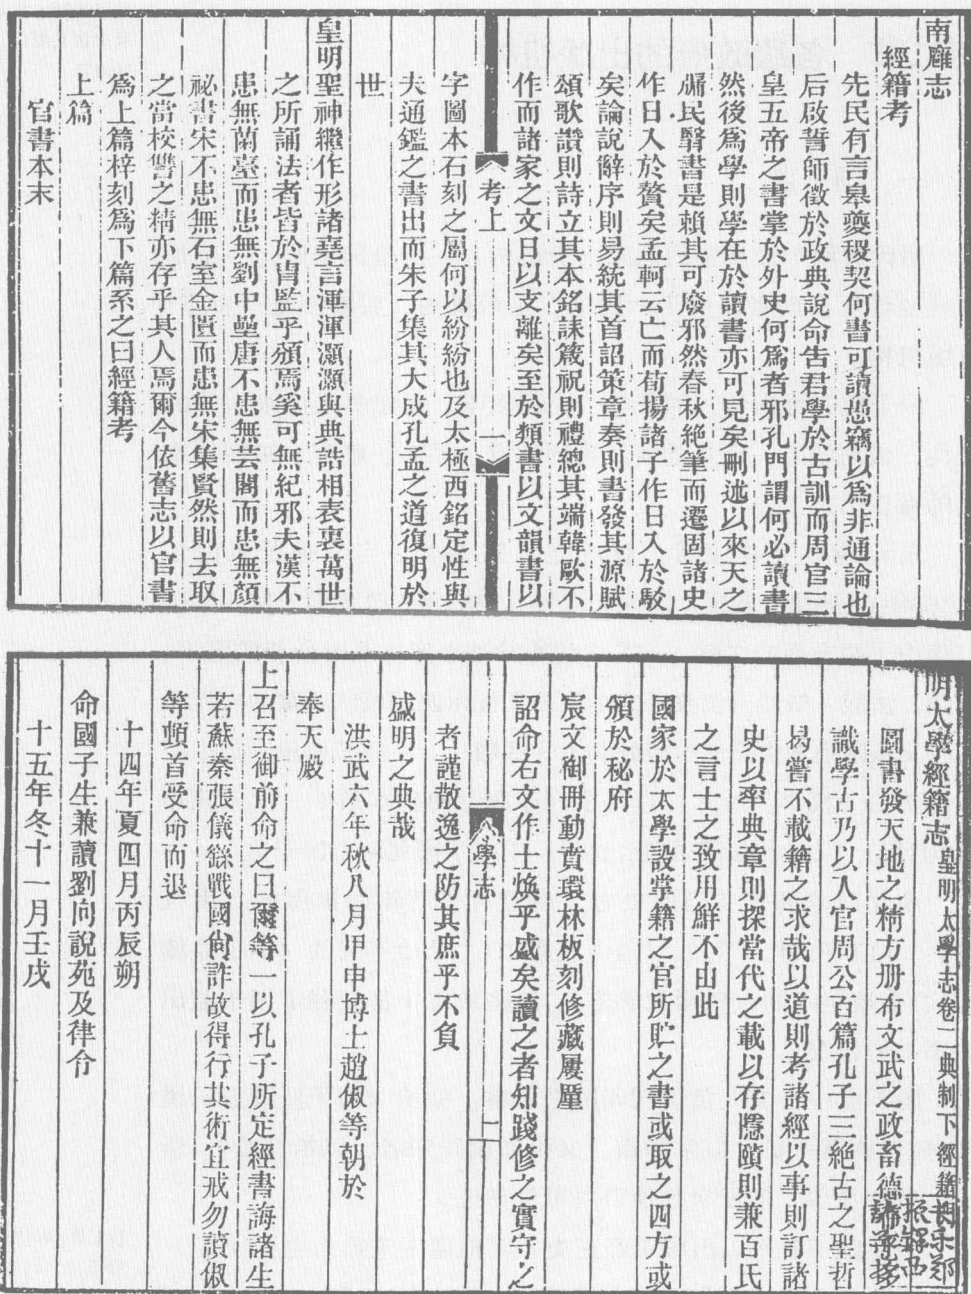 南廱志
經籍考
先民有言皋夔稷契何書可讀愚竊以爲非通論也
后啟誓師徵於政典說命告君學於古訓而周官三
皇五帝之書掌於外史何爲者邪孔門謂何必讀書
然後爲學則學在於讀書亦可見矣刪述以來天之
牖民繄書是賴其可廢邪然春秋絕筆而遷固諸史
作日入於贅矣孟軻云亡而荀揚諸子作日入於駁
矣論說辭序則易統其首詔策章奏則書發其源賦
頌歌讚則詩立其本銘誄箴祝則禮總其端韓歐不
作而諸家之文日以支離矣至於類書以文韻書以
考上
一
字圖本石刻之屬何以紛紛也及太極西銘定性與
夫通鑑之書出而朱子集其大成孔孟之道復明於
世
皇明聖神繼作形諸堯言渾渾灝灝與典誥相表裏萬世
之所誦法者皆於胄監乎頒焉奚可無紀邪夫漢不
患無蘭臺而患無劉中壘唐不患無芸閣而患無顏
祕書宋不患無石室金匱而患無宋集賢然則去取
之當校讐之精亦存乎其人焉爾今依舊志以官書
爲上篇梓刻爲下篇系之曰經籍考
上篇
官書本末
明太學經籍志 皇明太學志卷二典制下經籍
圖書發天地之精方册布文武之政畜德
識學古乃以人官周公百篇孔子三絕古之聖哲
曷嘗不載籍之求哉以道則考諸經以事則訂諸
史以率典章則探當代之載以存隱賾則兼百氏
之言士之致用鮮不由此
國家於太學設掌籍之官所貯之書或取之四方或
頒於秘府
宸文御册動賁環林板刻修藏屢廑
詔命右文作士煥乎盛矣讀之者知踐修之實守之
學志
一
者謹散逸之防其庶乎不負
盛明之典哉
洪武六年秋八月甲申博士趙俶等朝於
奉天殿
上召至御前命之曰爾等一以孔子所定經書誨諸生
若蘇秦張儀繇戰國尙詐故得行其術宜戒勿讀俶
等頓首受命而退
十四年夏四月丙辰朔
命國子生兼讀劉向說苑及律令
十五年冬十一月壬戌